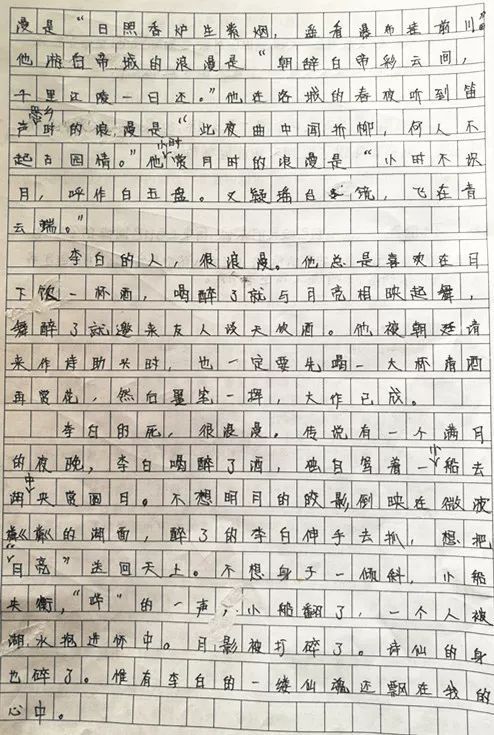 漫是“日照香炉生紫烟，遥看瀑布挂前川。”
他游白帝城的浪漫是“朝辞白帝彩云间，
千里江陵一日还。”他在洛城的春夜听到笛
声思乡时的浪漫是“此夜曲中闻折柳，何人不
起古园情。”他小时赏月时的浪漫是“小时不识
月，呼作白玉盘。又疑瑶台镜，飞在青
云端。”
李白的人，很浪漫。他总是喜欢在月
下饮一杯酒，喝醉了就与月亮相映起舞，
舞醉了就邀来友人谈天饮酒。他被朝廷请
来作诗助兴时，也一定要先喝一大杯清酒
再尝先，然后墨笔一挥，大作已成。
李白的死，很浪漫。传说有一个满月
的夜晚，李白喝醉了酒，独自驾着一小船去
湖中央赏圆月。不想明月的皎影倒映在微波
粼粼的湖面，醉了的李白伸手去抓，想把
“月亮”送回天上。不想身子一倾斜，小船
失衡，“哗”的一声，小船翻了，一个人被
湖水抱进怀中。月影被打碎了。诗仙的身
也碎了。惟有李白的一缕仙魂还飘在我的
心中。